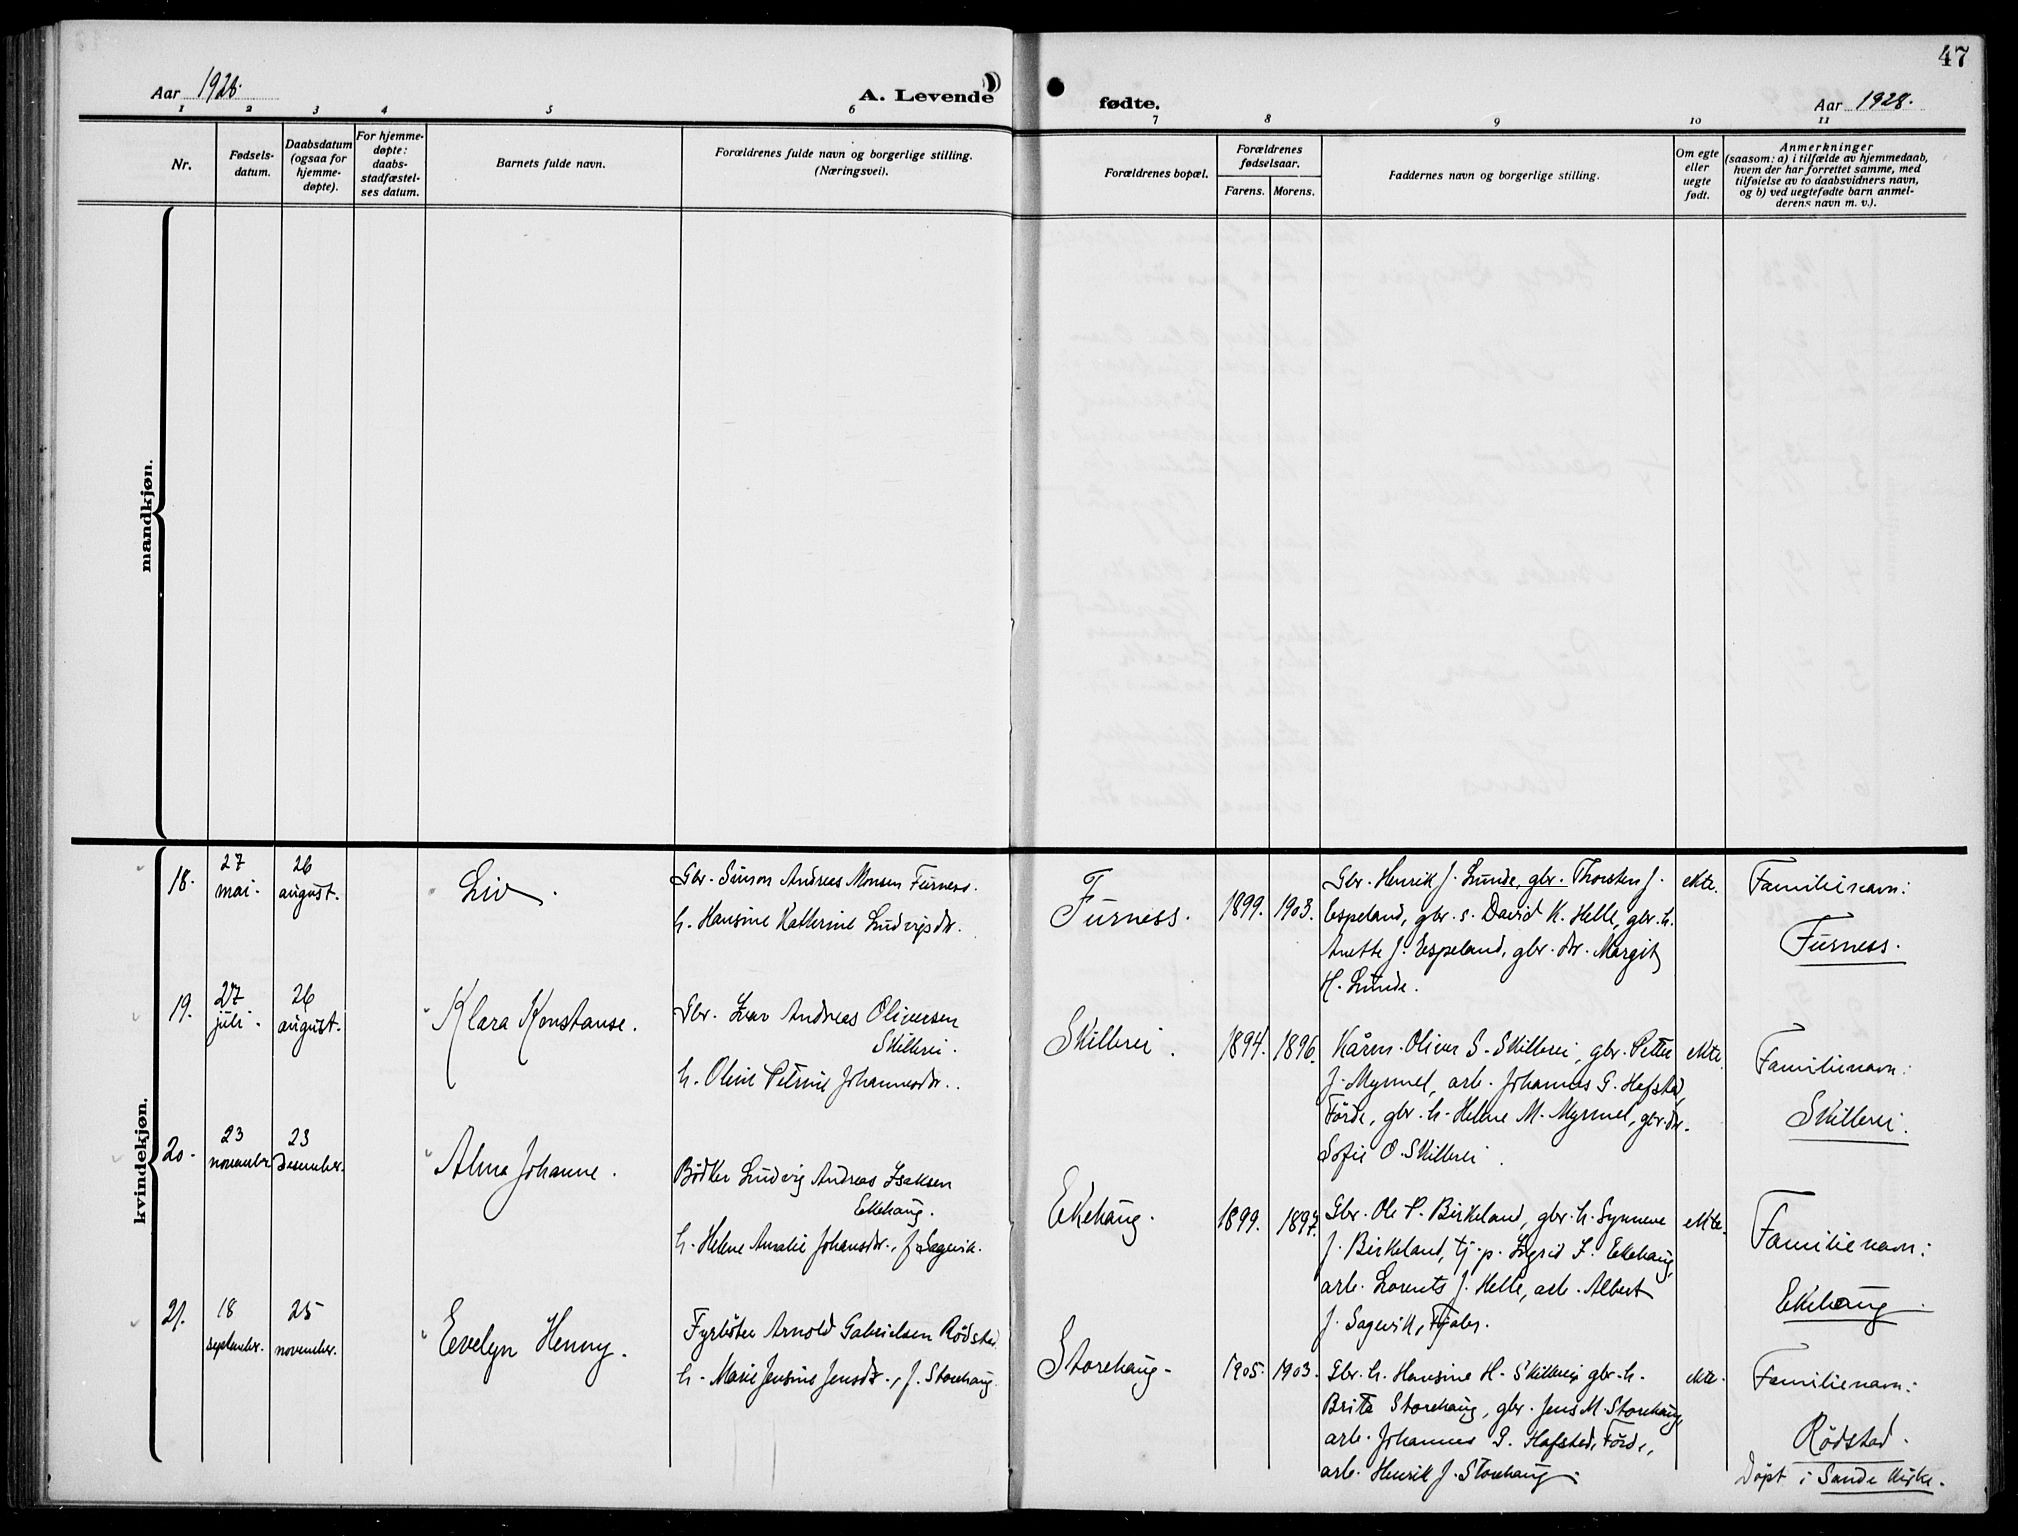 47
Aar 1928.
A. Levende
fødte.
Aar 1928.
1 2 3 4 5 6 7 8 9 10 11
Nr.
Fødsels-
datum.
Daabsdatum
(ogsaa for
hjemme-
døpte).
For hjemme-
døpte:
daabs-
stadfæstel-
ses datum.
Barnets fulde navn.
Forældrenes fulde navn og borgerlige stilling.
(Næringsvei).
Forældrenes bopæl.
Forældrenes
fødselsaar.
Farens. Morens.
Faddernes navn og borgerlige stilling.
Om egte
eller
uegte
født.
Anmerkninger
(saasom: a) i tilfælde av hjemmedaab,
hvem der har forrettet samme, med
tilføielse av to daabsvidners navn,
og b) ved uegtefødte barn anmel-
derens navn m. v.).
mandkjøn.
kvindekjøn.
18.
27
mai.
26
august.
Liv.
Gbr. Simon Andreas Monsen Furness.
h. Hansine Katherine Ludvigsdr.
Furness.
1899. 1903.
Gbr. Henrik J. Lunde, gbr. Thorsten J.
Espeland, gbr. s. David K. Helle, gbr. h.
Anette J. Espeland, gbr. dr. Margit
H. Lunde.
ekte.
Familienavn:
Furness.
19.
27
juli.
26
august.
Klara Konstanse.
Gbr. Ivar Andreas Oliversen
Skillerei.
h. Oline Petrine Johannesdr.
Skillerei.
1894. 1896.
Kårm. Oliver S. Skillerei, gbr. Petter
J. Myrmel, arb. Johannes G. Hafstad,
Förde, gbr. h. Helene M. Myrmel, gbr. dr.
Sofie O. Skillerei.
ekte.
Familienavn:
Skillerei.
20.
23
november
23
desember.
Alma Johanne.
Bödker Ludvig Andreas Isaksen
Ekehaug.
h. Helene Amalie Johansdr., f. Sagevik.
Ekehaug.
1899. 1897.
Gbr. Ole P. Birkeland, gbr. h. Synneve
J. Birkeland, tj. p. Ingrid I. Ekehaug,
arb. Lorents J. Helle, arb. Albert
J. Sagevik, Fjaler.
ekte.
Familienavn:
Ekehaug.
21.
18
september.
25
november.
Evelyn Henny.
Fyrböter Arnold Gabrielsen Rödstad
h. Marie Jensine Jensdr., f. Storehaug.
Storehaug.
1905. 1903.
Gbr. h. Hansine H. Skillerei, gbr. h.
Brita Storehaug, gbr. Jens M. Storehaug,
arb. Johannes G. Hafstad, Förde,
arb. Henrik J. Storehaug.
ekte.
Familienavn:
Rödstad.
Döpt i Sande kirke.